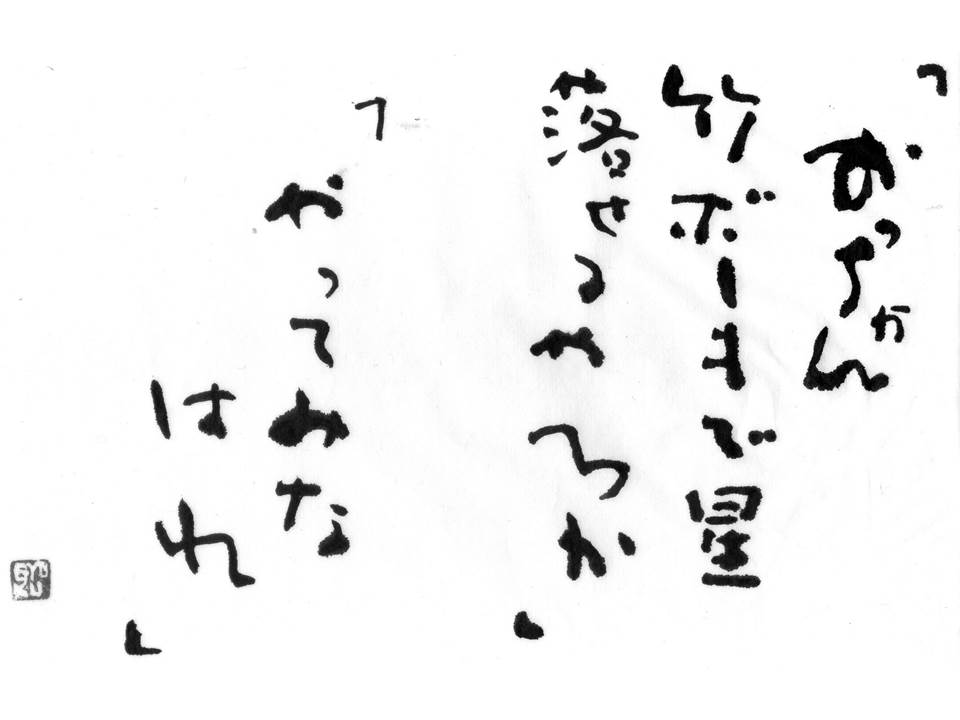 「おっちゃん
竹ボーキで星
落せるやろか」
「やってみな
はれ」